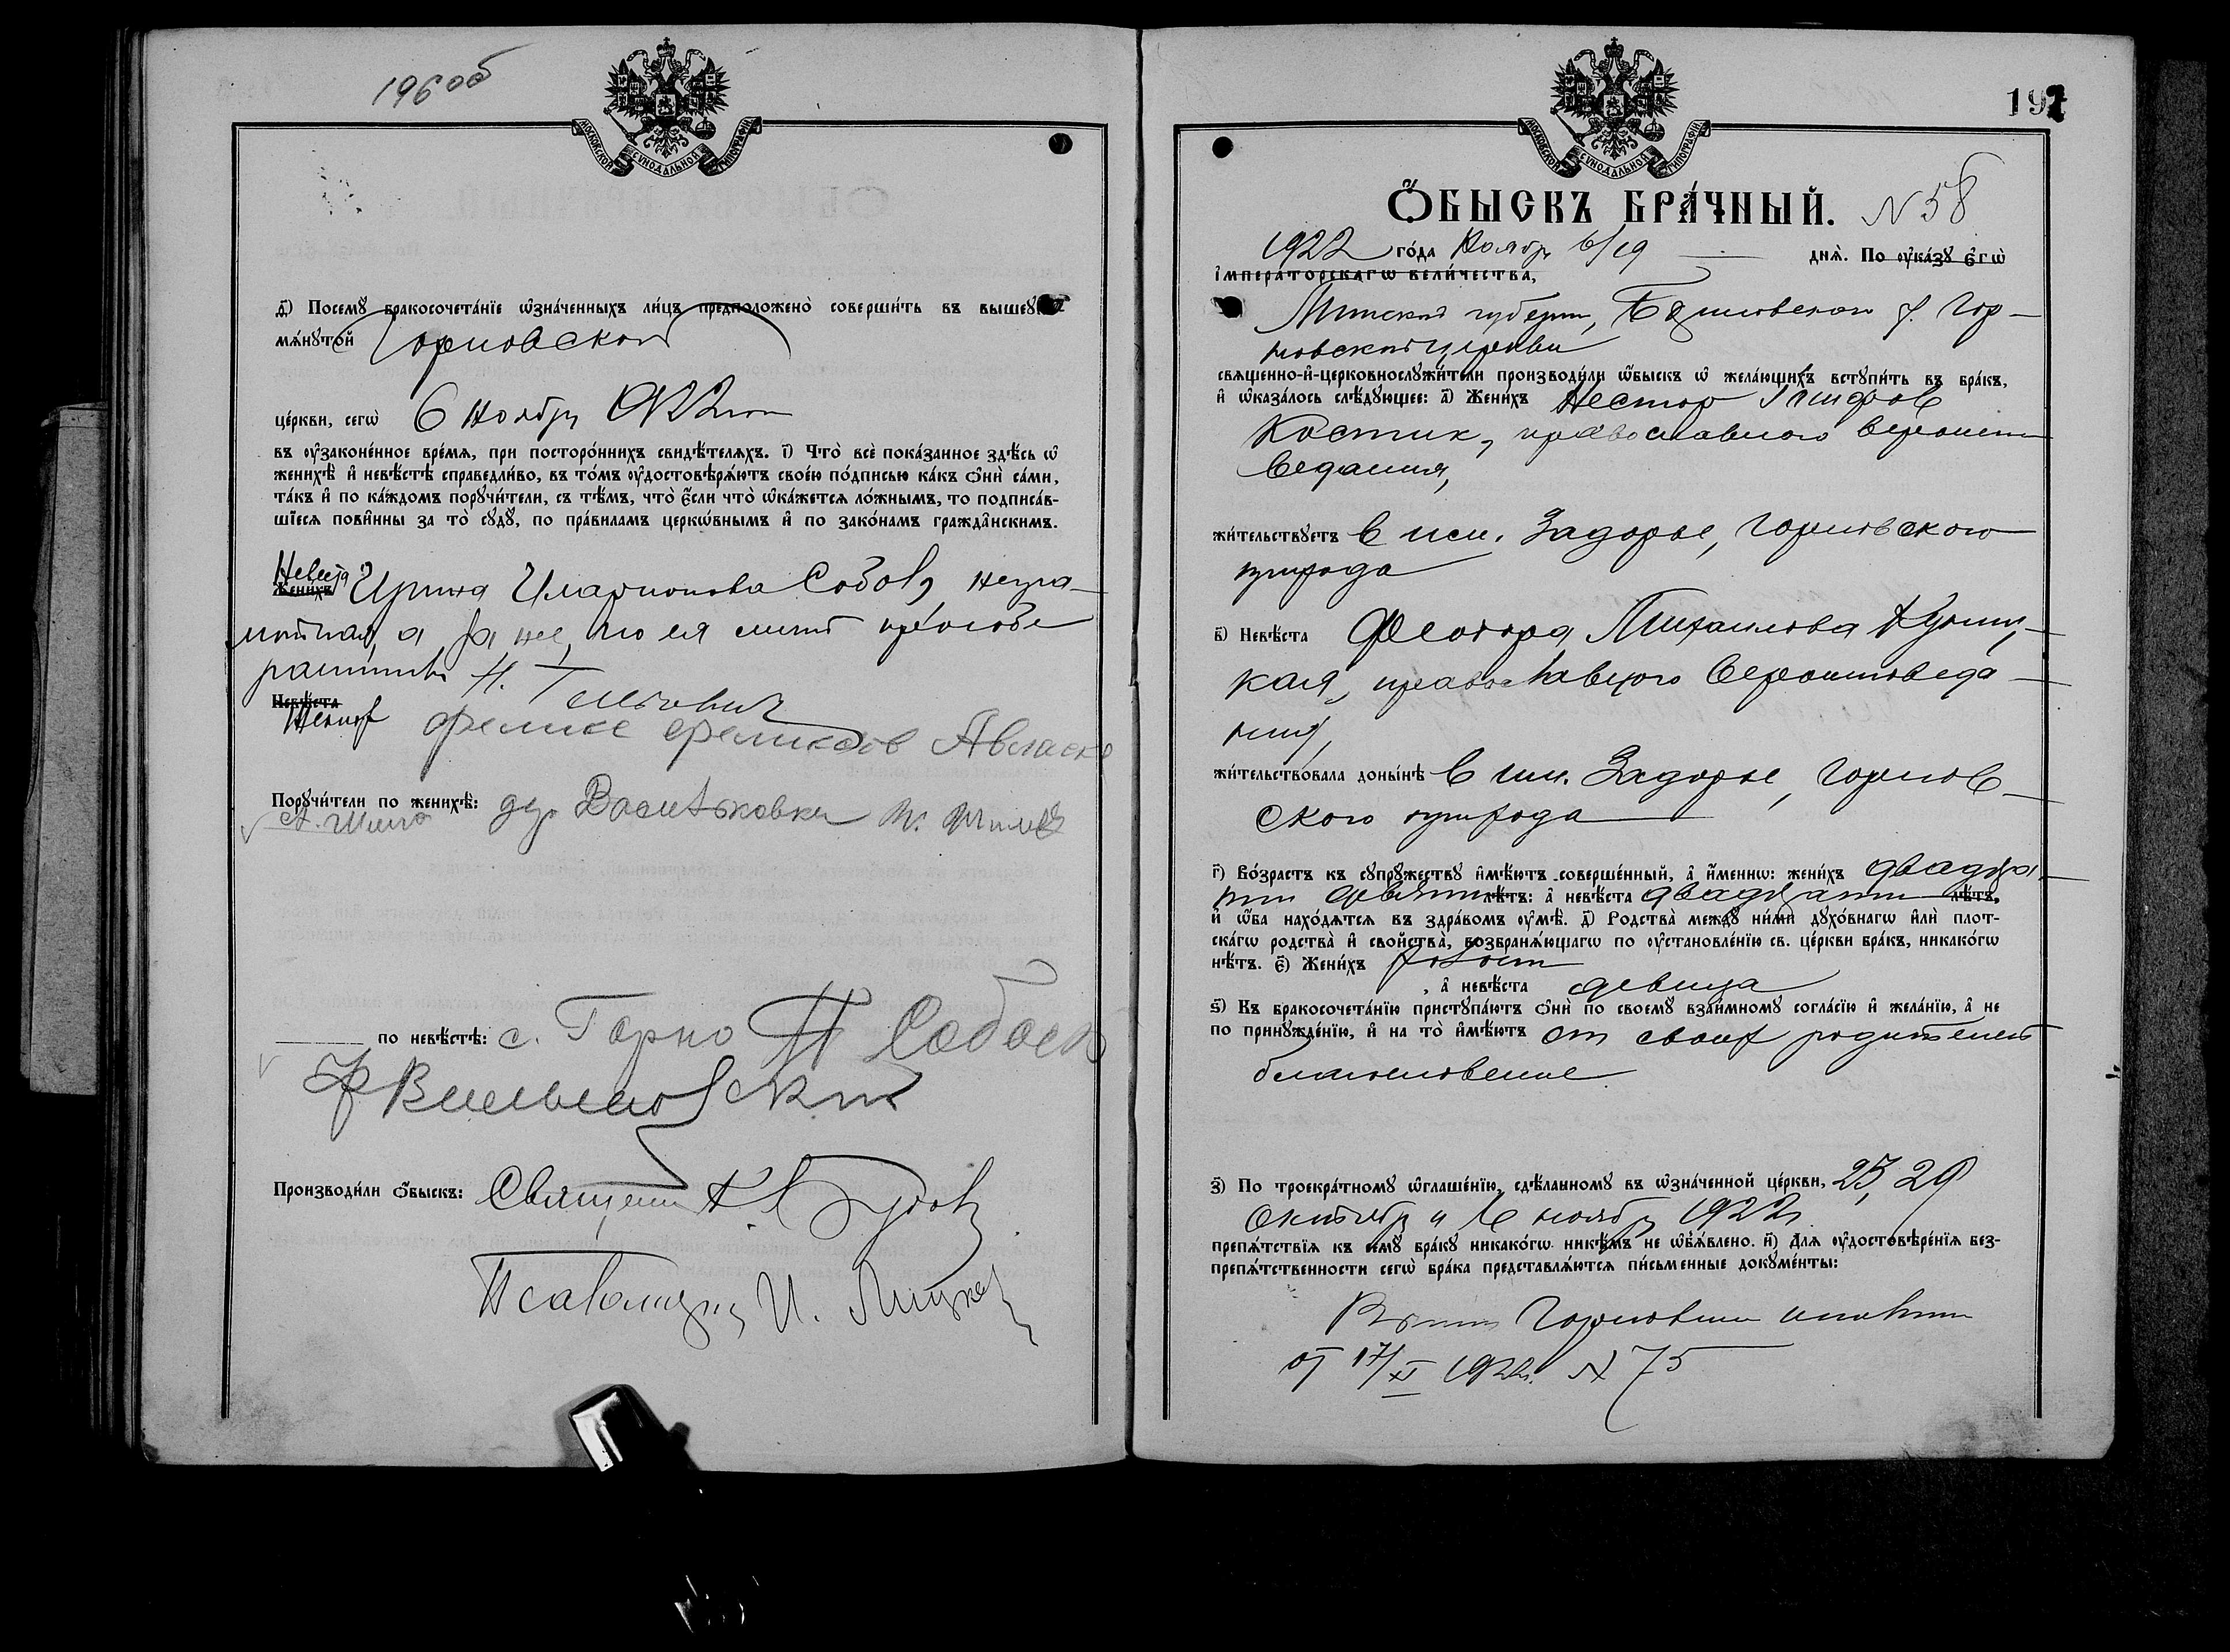 196 об
МОСКОВСКОЙ СУНОДАЛЬНОЙ ТИПОГРАФІИ
д҃) Посемꙋ̀ бракосочета́нїе ѡ҆зна́ченныхъ ли́цъ предположено̀ соверши́ть въ вышеꙋпо-
мѧ́нꙋтой Горновской
це́ркви, сегѡ̀ 6 Ноября 1922 года
въ ᲂу҆зако́ненное вре́мѧ, при посторо́ннихъ свидѣ́телѧхъ. і҃) Что̀ всѐ пока́занное здѣ́сь ѡ҆
женихѣ̀ и҆ невѣ́стѣ справедли́во, въ то́мъ ᲂу҆достовѣрѧ́ютъ свое́ю по́дписью ка́къ ѻ҆нѝ са́ми,
та́къ и҆ по ка́ждомъ порꙋчи́тели, съ тѣ́мъ, что̀ є҆́сли что̀ ѡ҆ка́жетсѧ ло́жнымъ, то подписа́в-
шїесѧ пови́нны за то̀ сꙋдꙋ̀, по пра́виламъ церко́внымъ и҆ по зако́намъ гражда́нскимъ.
Невеста
Жени́хъ Ирина Иларионова Соболь, негра-
мотная, а за нее, по ея личной просьбе
Невѣ́ста
Жених Феликс Феликсов
Порꙋчи́тели по женихѣ̀: дер Васильковка
по невѣ́стѣ: с. Горно П Соболь
Производи́ли ѻ҆́быскъ: Священник
Псаломщик И.
197
МОСКОВСКОЙ СУНОДАЛЬНОЙ ТИПОГРАФІИ
Ѻ҆́БЫСКЪ БРА́ЧНЫЙ. N 58
1922 го́да Ноября 6/19 днѧ̀. По ᲂу҆ка́зꙋ є҆гѡ̀
і҆мпера́торскагѡ вели́чества,
Минской губернии, у. Гор-
новской церкви
свѧщенно-и҆-церковнослꙋжи́тели производи́ли ѡ҆́быскъ ѡ҆ жела́ющихъ встꙋпи́ть въ бра́къ,
и҆ ѡ҆каза́лось слѣ́дꙋющее: а҃) Жени́хъ Нестор
Костик, православного вероиспо
ведания,
жи́тельствꙋетъ в им. Задорье, Горновского
прихода
в҃) Невѣ́ста Феодора Михаилова
кая, православного вероисповеда
ния,
жи́тельствовала доны́нѣ в им. Задорье, Горнов-
ского прихода
г҃) Во́зрастъ къ сꙋпрꙋ́жествꙋ и҆мѣ́ютъ соверше́нный, а҆ и҆́менно: жени́хъ двадца-
ти девяти лѣ́тъ: а҆ невѣ́ста двадцати лѣ́тъ,
и҆ ѡ҆́ба нахо́дѧтсѧ въ здра́вомъ ᲂу҆мѣ̀. д҃) Родства̀ междꙋ̀ ни́ми дꙋхо́внагѡ и҆лѝ плот-
ска́гѡ родства̀ и҆ свойства̀, возбранѧ́ющагѡ по ᲂу҆становле́нїю св. це́ркви бра́къ, никако́гѡ
нѣ́тъ. є҃) Жени́хъ холост
, а҆ невѣ́ста девица
ѕ҃) Къ бракосочета́нїю пристꙋпа́ютъ ѻ҆нѝ по своемꙋ̀ взаи́мномꙋ согла́сїю и҆ жела́нїю, а҆ не
по принꙋжде́нїю, и҆ на то̀ и҆мѣ́ютъ от своих родителей
благословение
з҃) По троекра́тномꙋ ѡ҆глаше́нїю, сдѣ́ланномꙋ въ ѡ҆зна́ченной це́ркви, 23, 29
Октября и 6 ноября 1922 г.
препѧ́тствїѧ къ семꙋ̀ бра́кꙋ никако́гѡ никѣ́мъ не ѡ҆б̾ѧ́влено. и҃) Длѧ ᲂу҆достовѣре́нїѧ без-
препѧ́тственности сегѡ̀ бра́ка представлѧ́ютсѧ пи́сьменные докꙋме́нты:
от 17/XI 1922 г. N 75